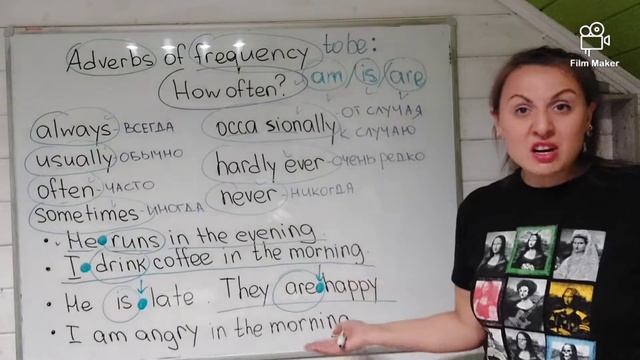 Adverbs of frequency to be:
How often? am/is/are
always - ВСЕГДА
usually - ОБЫЧНО
often - ЧАСТО
sometimes - ИНОГДА
occasionally - ОТ СЛУЧАЯ
К СЛУЧАЮ
hardly ever - ОЧЕНЬ РЕДКО
never - НИКОГДА
• He runs in the evening.
• I drink coffee in the morning.
• He is late. They are happy
• I am angry in the morning
Film Maker